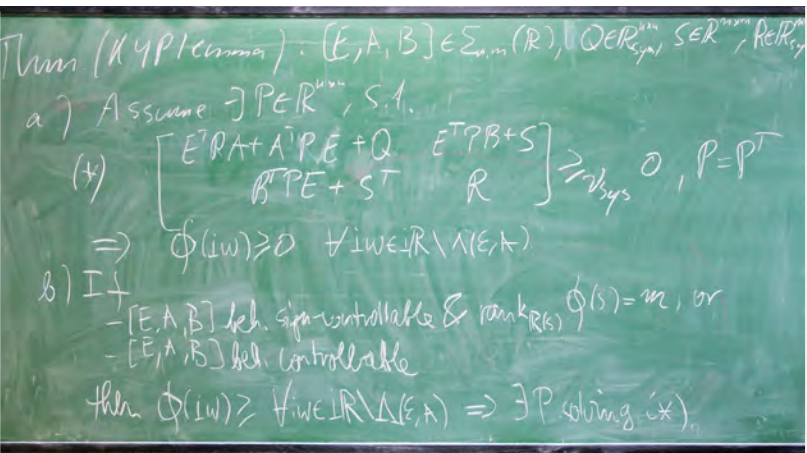 Thm (KYP lemma): [E,A,B] ∈ Σ_{n,m}(ℝ), Q∈ℝ^{n×n}_{sym}, S∈ℝ^{n×m}, R∈ℝ_{sy}
a) Assume ∃ P∈ℝ^{n×n}, s.t.
(*) [ E^T P A + A^T P E + Q   E^T P B + S
B^T P E + S^T   R ] ≥_{V_{sys}} 0, P = P^T
⇒ Φ(iω) ≥ 0 ∀ iω∈iℝ \ Λ(E,A)
b) If
- [E,A,B] beh. sign-controllable & rank_{ℝ(s)} Φ(s) = m, or
- [E,A,B] beh. controllable
then Φ(iω) ≥ ∀ iω∈iℝ \ Λ(E,A) ⇒ ∃ P solving (*).